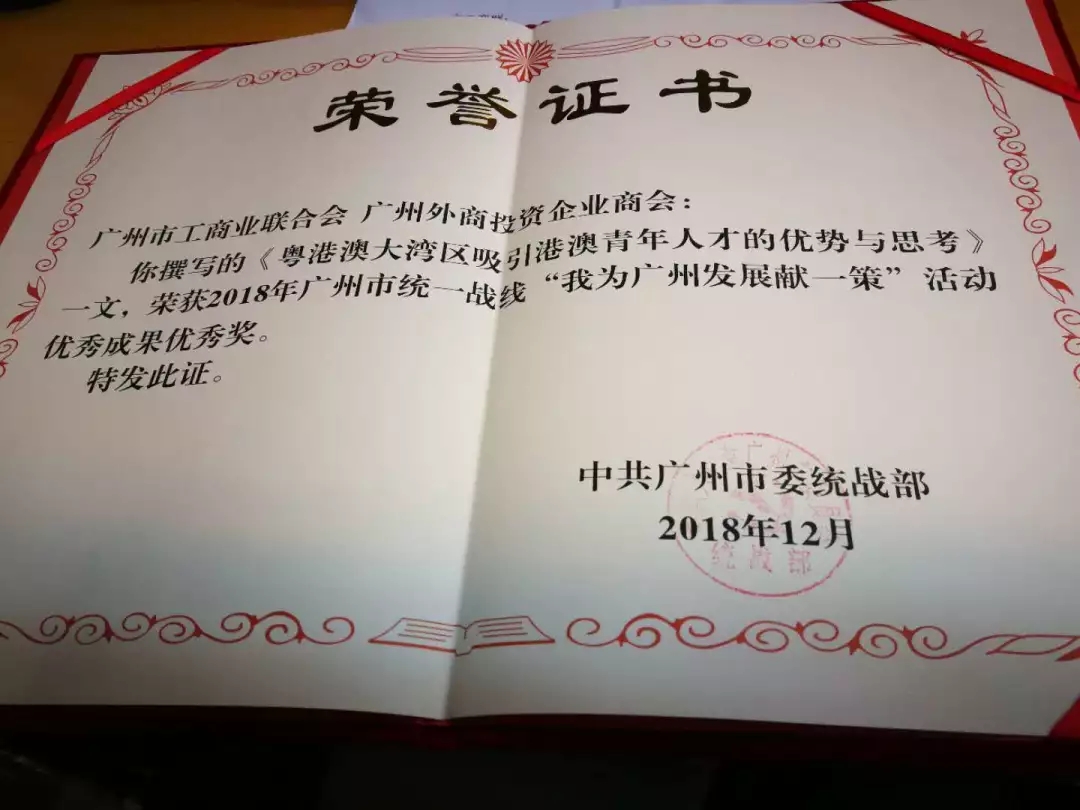 荣誉证书
广州市工商业联合会 广州外商投资企业商会：
你撰写的《粤港澳大湾区吸引港澳青年人才的优势与思考》
一文，荣获2018年广州市统一战线“我为广州发展献一策”活动
优秀成果优秀奖。
特发此证。
中共广州市委统战部
2018年12月
统战部